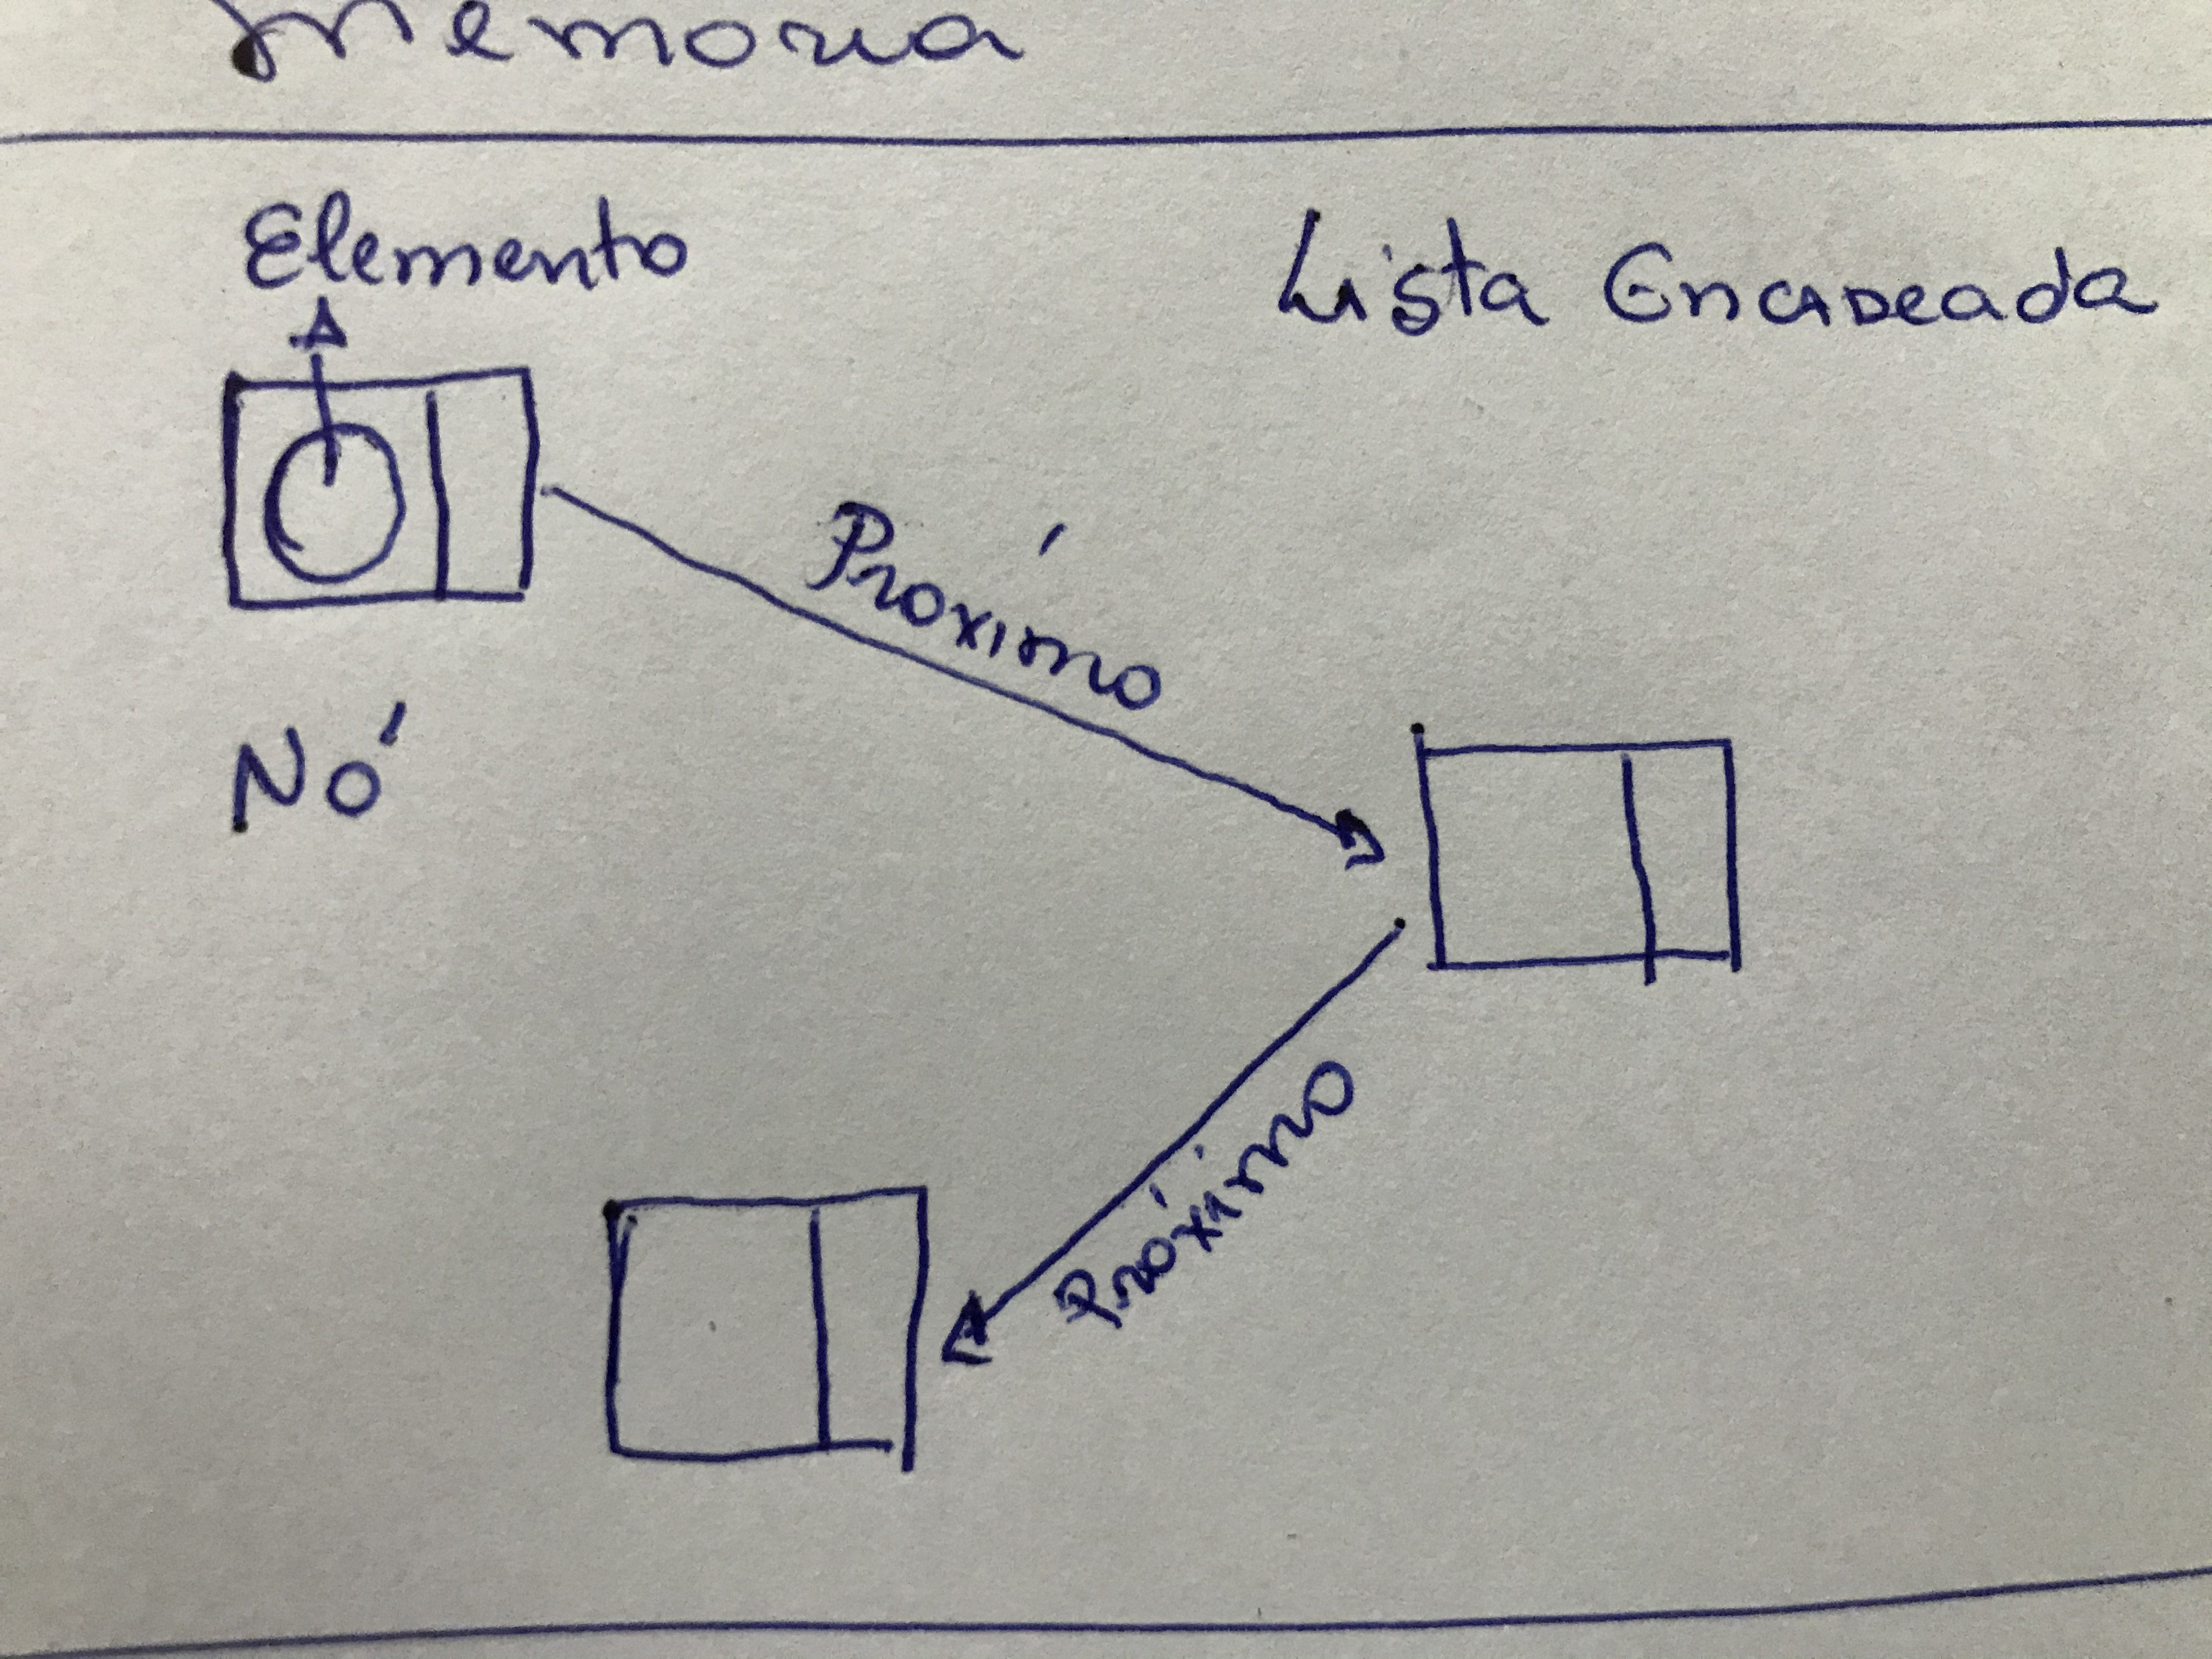 Memoria
Elemento
Lista Encadeada
Próximo
Nó
Próximo